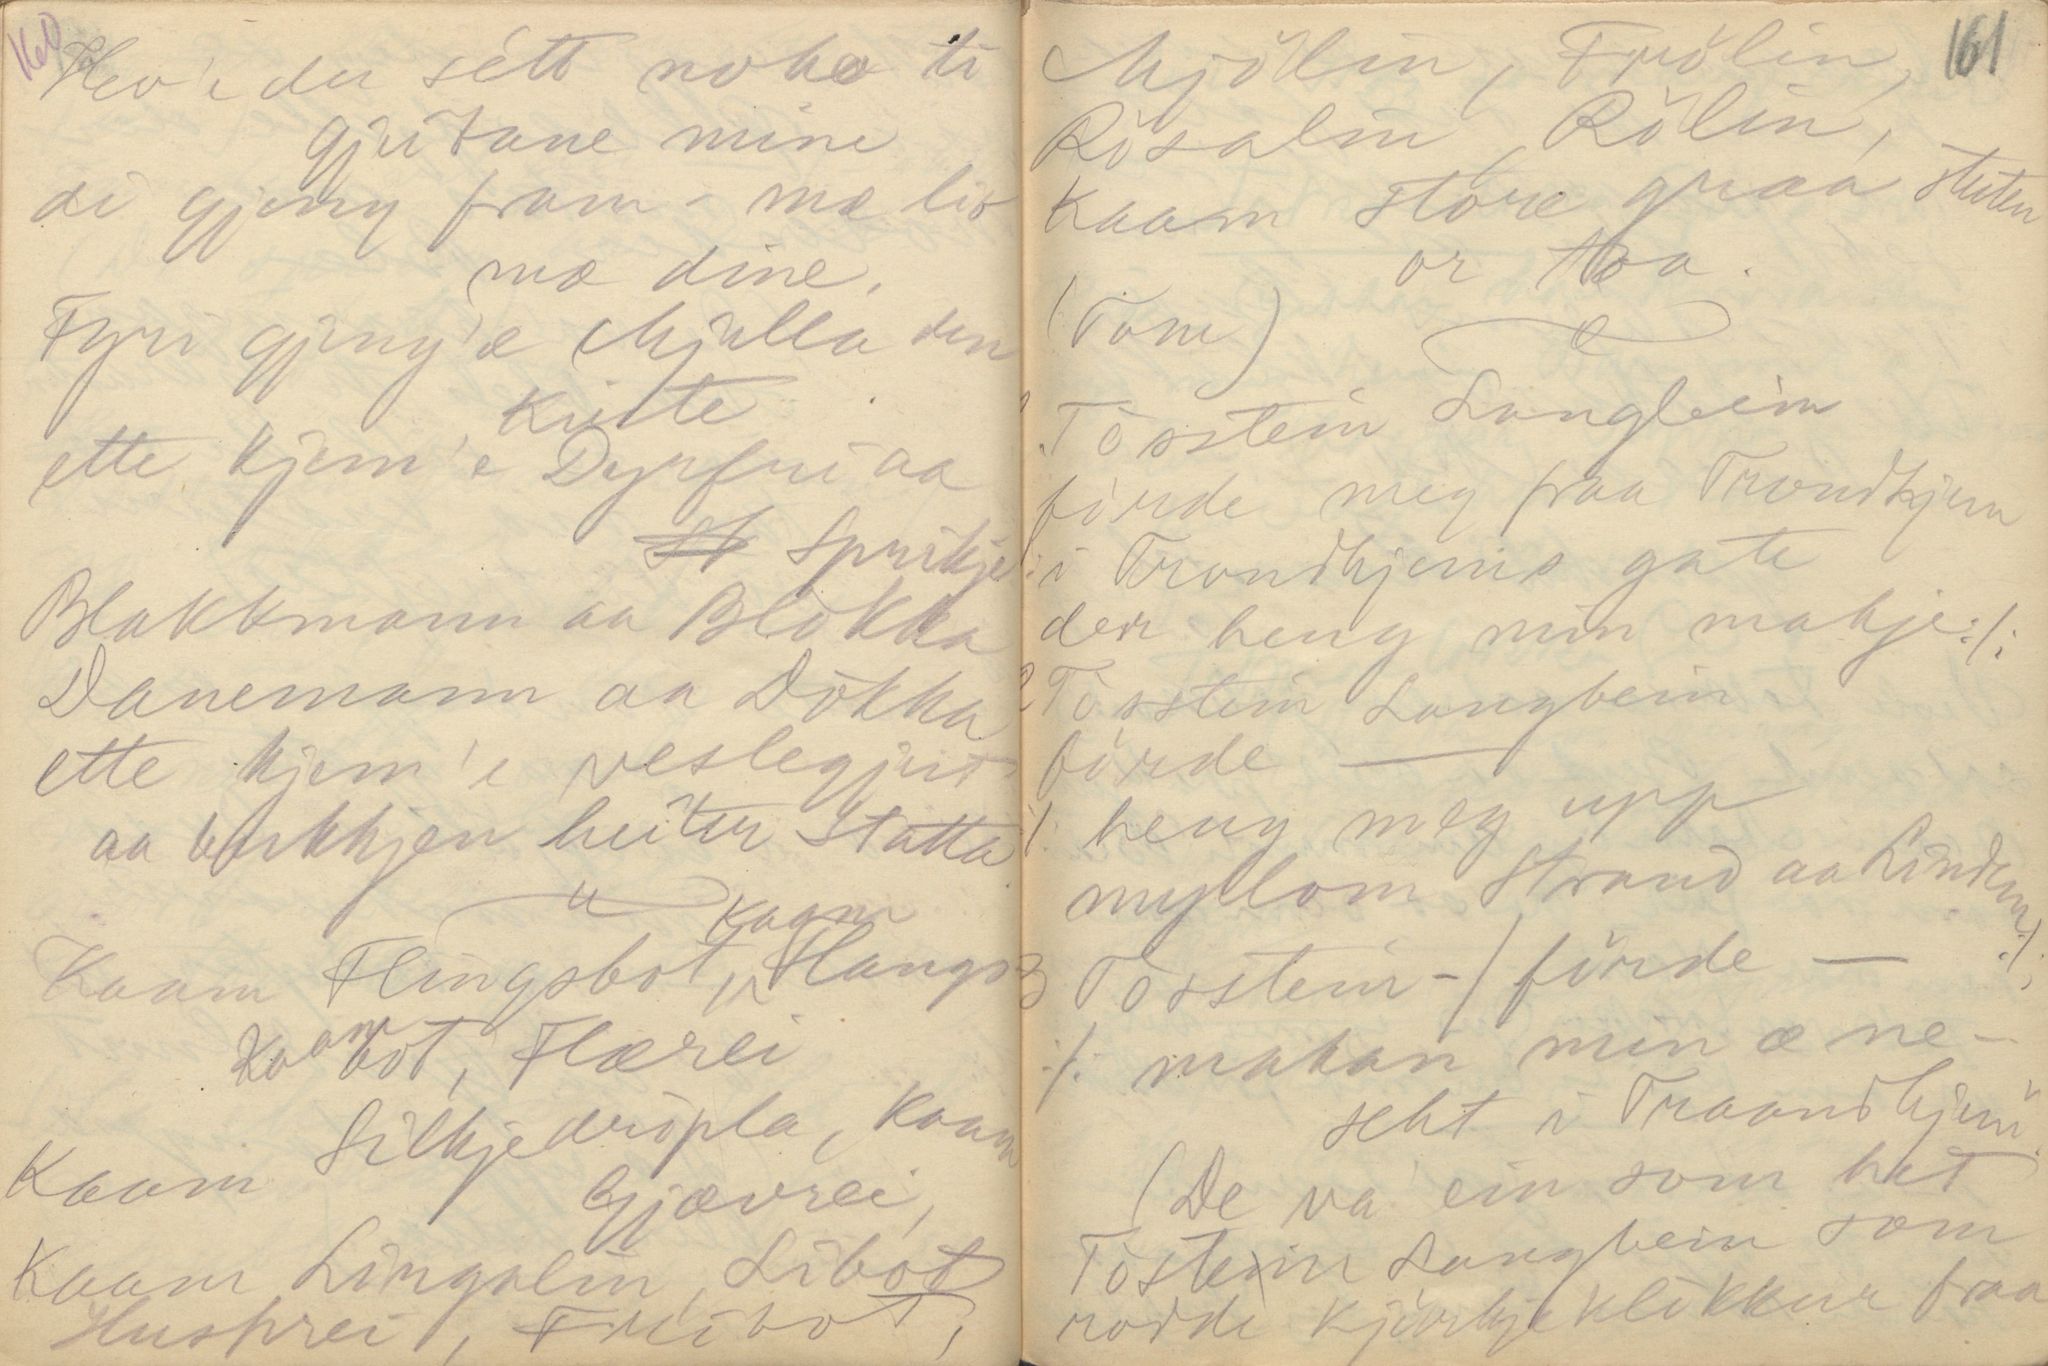 160
Hev' i du sétt noko ti
gjeitane mine
di gjeng fram - mæ lio
mæ dine.
Fyri gjeng'e Mjølla den
kvite
ette kjem'e Dyrfri aa
Sprikje
Blakkmann aa Blökka
Danemann aa Dökka
ette kjem'e veslegjeit
aa bukkjen heiter Statta
Kaam Flingsbot, Kaam Hangs
bot, Kaam Flærei
Kaam Silkjedröpla, Kaam
Gjævrei,
Kaam Lingalin, Libot
Husfrei, Fribot,
161
Mjölin, Frölin,
Rösalin, Rölin,
Kaam store graa stuten
or tLoa.
(Tone)
1 Tosstein Langbein
förde meg fraa Trondhjem
:/: i Trondhjems gate
der heng min makje :/:
2 Tosstein Langbein
förde —
:/: heng meg upp
myllom Strand aa Lindem :/:
3 Tosstein - / förde —
:/: makan min æ ne-
sekt i Traandhjem :/:
(De va ein som het
Tostein Langbein som
rodde kjörkjeklökkur fraa